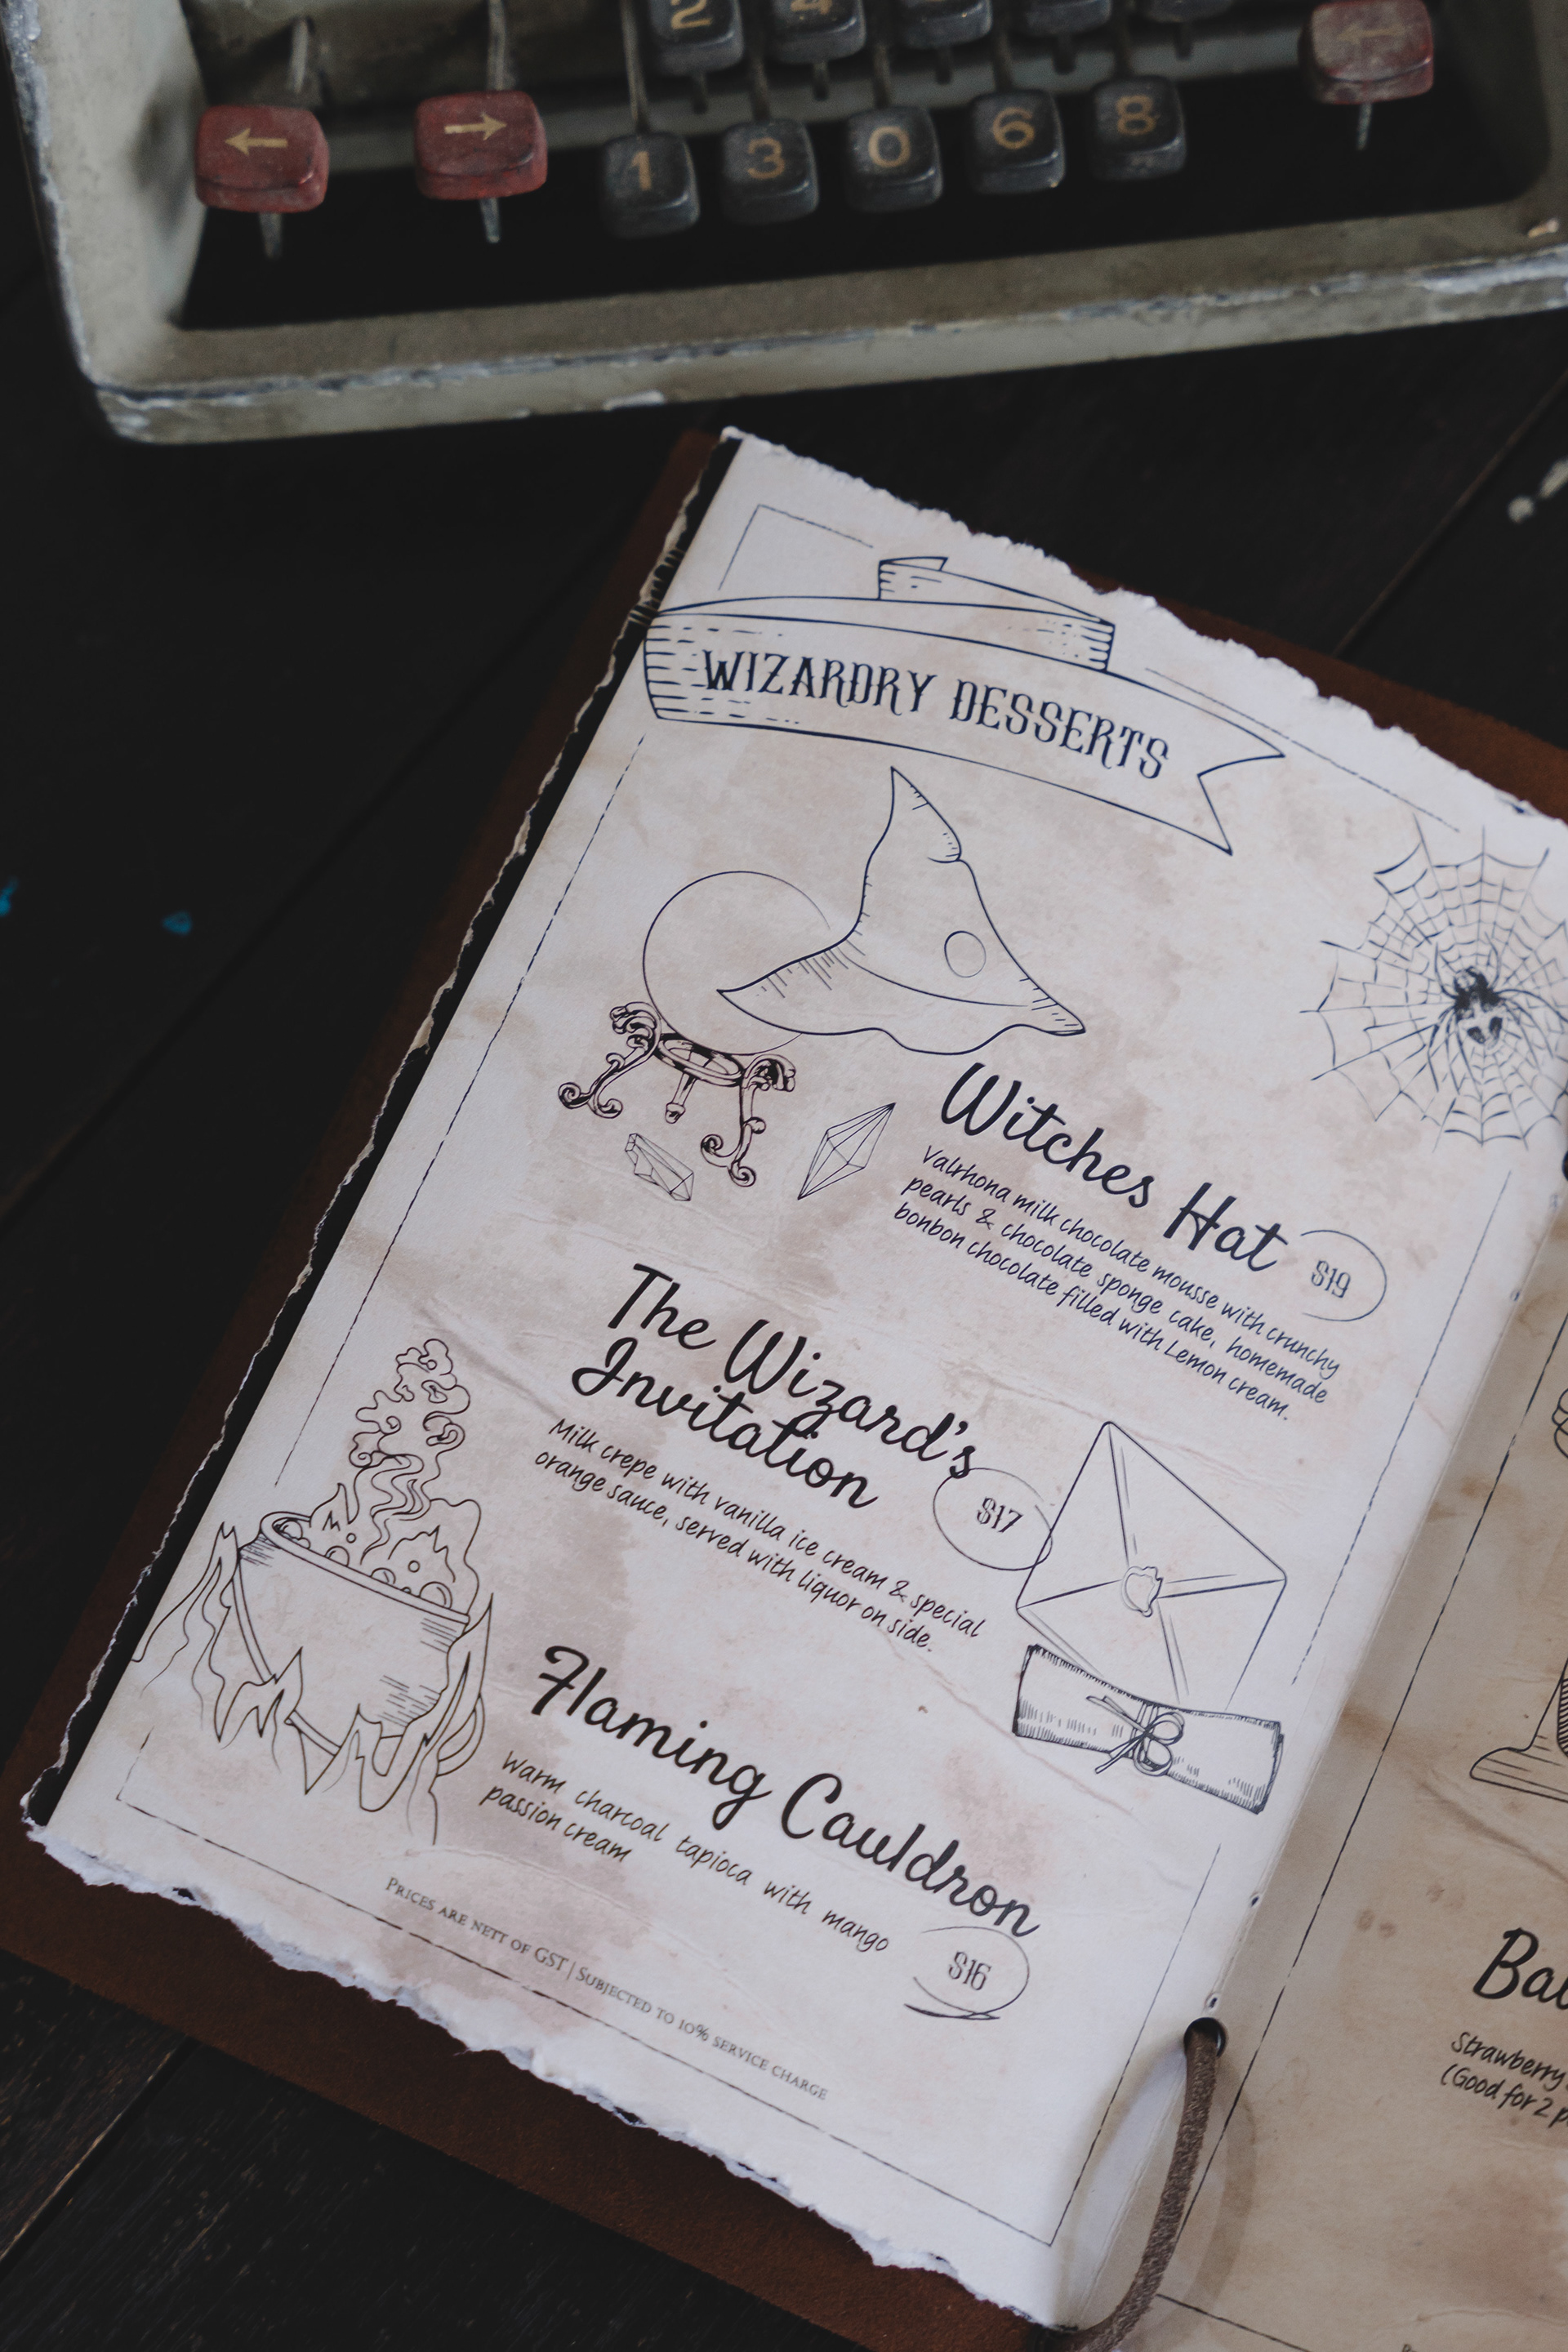 2 4
← → 1 3 0 6 8 ←
WIZARDRY DESSERTS
Witches Hat
$19
Valrhona milk chocolate mousse with crunchy
pearls & chocolate sponge cake, homemade
bonbon chocolate filled with Lemon cream.
The Wizard's
Invitation
$17
Milk crepe with vanilla ice cream & special
orange sauce, served with liquor on side.
Flaming Cauldron
Warm charcoal tapioca with mango
passion cream
$16
PRICES ARE NETT OF GST | SUBJECTED TO 10% SERVICE CHARGE
Strawberry
(Good for 2